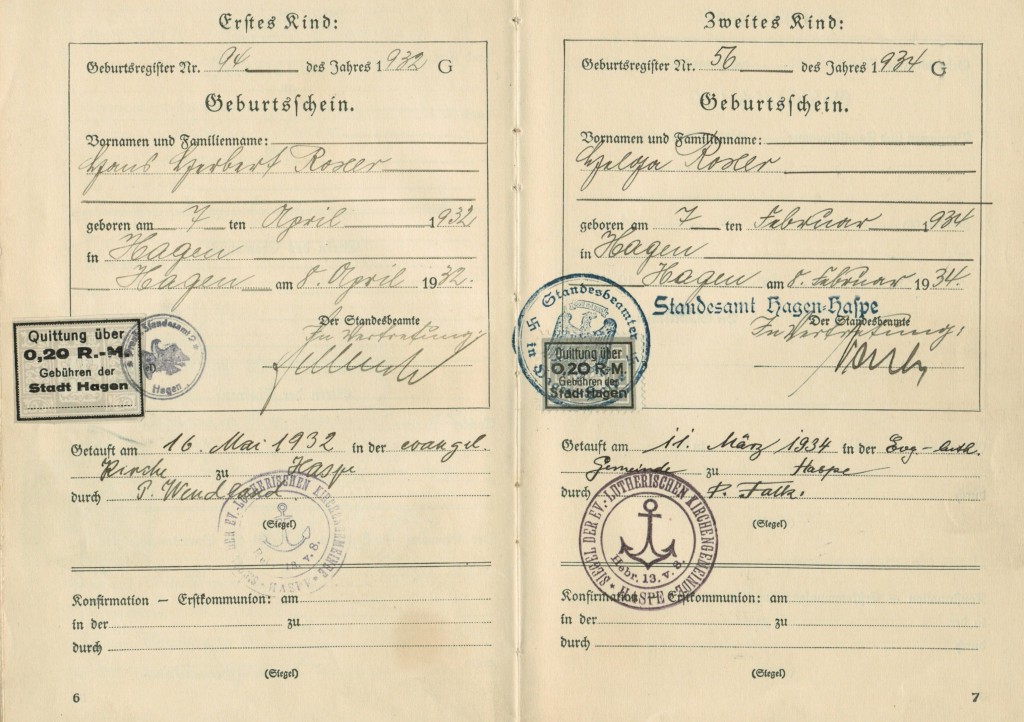 Erstes Kind:
Geburtsregister Nr. 94 des Jahres 1932 G
Geburtsschein.
Vornamen und Familienname:
Hans Herbert Roxer
geboren am 7 ten April 1932
in Hagen
Hagen am 8. April 1932.
Der Standesbeamte
In Vertretung:
Quittung über
0,20 R.-M.
Gebühren der
Stadt Hagen
Standesamt
Hagen
Getauft am 16. Mai 1932 in der evangel.
Kirche zu Haspe
durch P. Wendland.
(Siegel)
SIEGEL DER EV.-LUTHERISCHEN KIRCHENGEMEINDE
Hebr. 13. v. 8.
HASPE
Konfirmation – Erstkommunion: am
in der zu
durch
(Siegel)
6
Zweites Kind:
Geburtsregister Nr. 56 des Jahres 1934 G
Geburtsschein.
Vornamen und Familienname:
Helga Roxer
geboren am 7 ten Februar 1934
in Hagen
Hagen am 8. Februar 1934.
Standesamt Hagen-Haspe
Der Standesbeamte
In Vertretung:
Standesbeamter
in
Quittung über
0,20 R.-M.
Gebühren der
Stadt Hagen
Getauft am 11. März 1934 in der Evg.-luth.
Gemeinde zu Haspe
durch P. Falk.
(Siegel)
SIEGEL DER EV.-LUTHERISCHEN KIRCHENGEMEINDE
Hebr. 13. v. 8.
HASPE
Konfirmation – Erstkommunion: am
in der zu
durch
(Siegel)
7